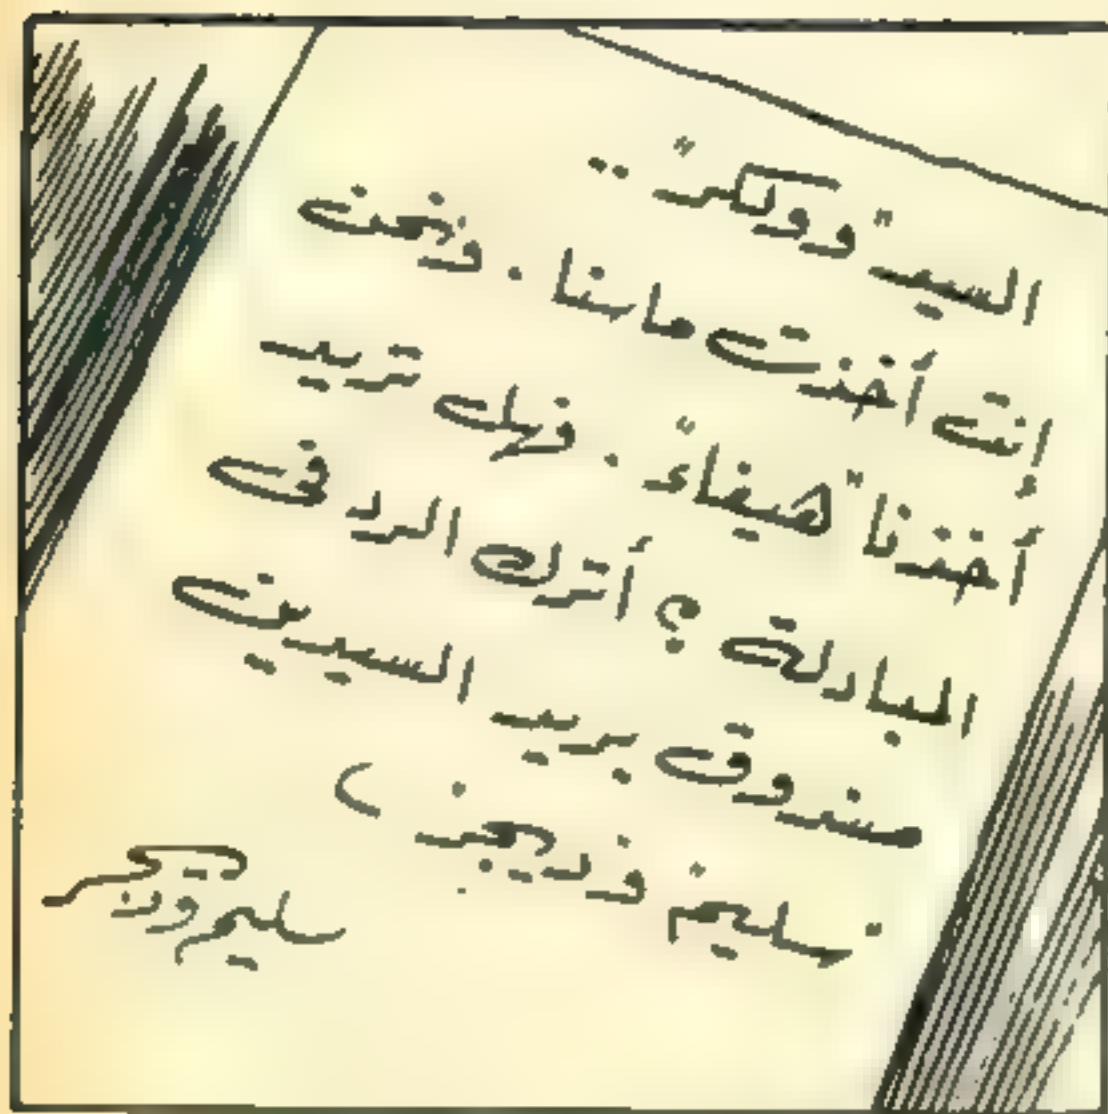 السيد "ووكر" ..
إنت أخذت ماسنا . ونحن
أخذنا "هيفاء" . فهل تريد
المبادلة ؟ أترك الرد فى
صندوق بريد السيدين
سليم وريجز
سليم وريجز